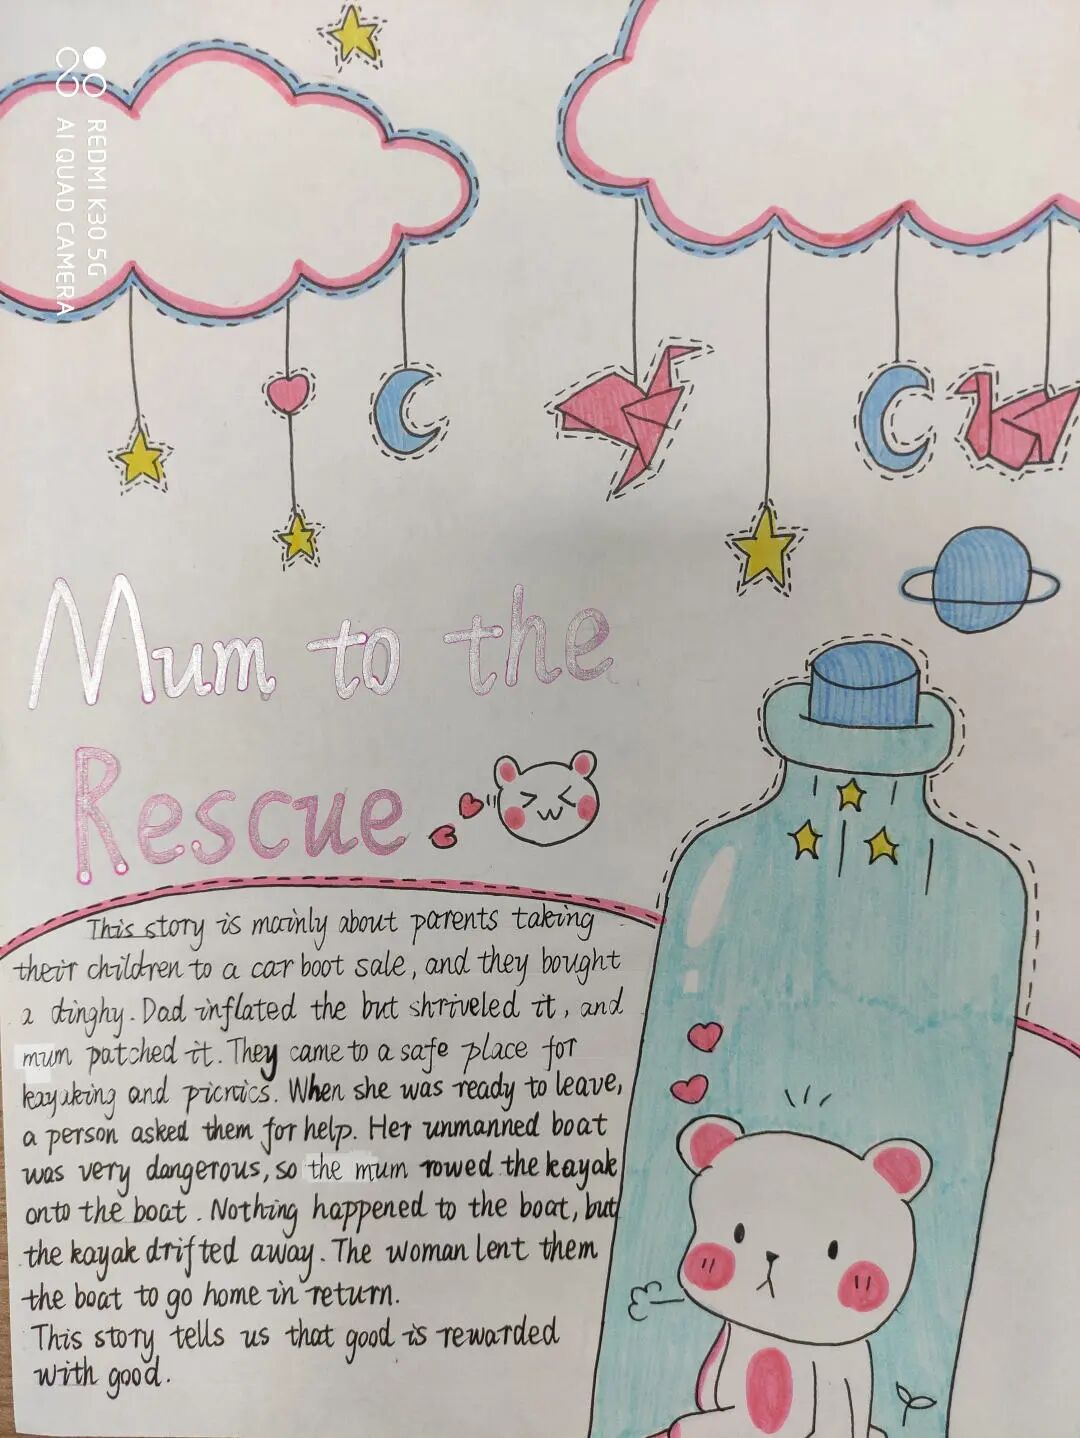 REDMI K30 5G
AI QUAD CAMERA
Mum to the
Rescue
This story is mainly about parents taking
their children to a car boot sale, and they bought
a dinghy. Dad inflated the but shriveled it, and
mum patched it. They came to a safe place for
kayaking and picnics. When she was ready to leave,
a person asked them for help. Her unmanned boat
was very dangerous, so the mum rowed the kayak
onto the boat. Nothing happened to the boat, but
the kayak drifted away. The woman lent them
the boat to go home in return.
This story tells us that good is rewarded
with good.